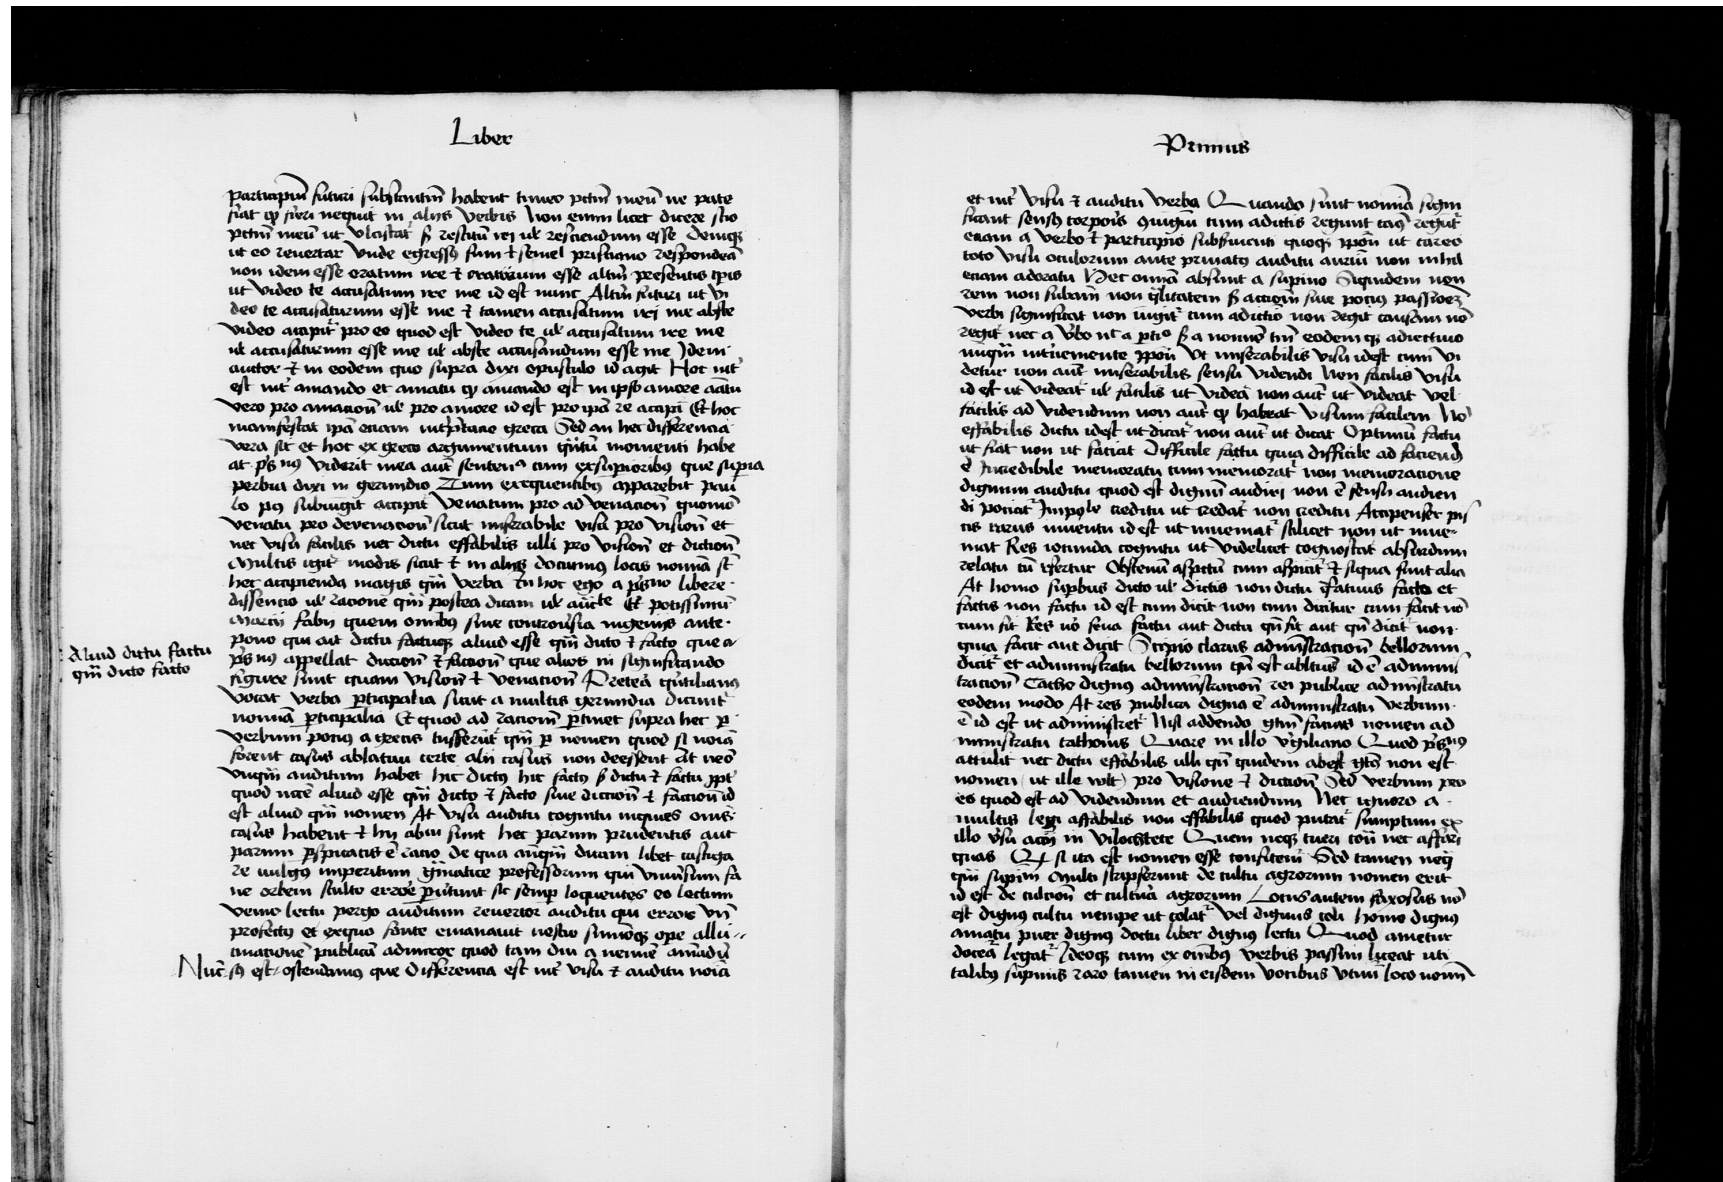 Liber
participiū futuri substantiū habent timeo pctm̄ meū ne pate
fiat qꝫ fieri nequit in alijs verbis Non enim licet dicere scio
pctm̄ meū ut ulcistat sꝫ restitū iri ul resciendum esse Deniqꝫ
ut eo revertar unde egressꝰ sum et semel prisciano respondeā
non idem esse oratum ire et oraturum esse altm̄ presentis tp̄is
ut video te accusatum ire me id est nunc Altm̄ futuri ut vi
deo te accusaturum esse me et tamen accusatum iri me abste
video accipit᷑ pro eo quod est video te ul accusatum ire me
ul accusaturum esse me ul abste accusandum esse me Idem
auctor et in eodem quo supra dixi opusculo id agit Hoc int̄
est int̄ amando et amatu qꝫ amando est in ipso amore amatu
vero pro amacion̄ ul pro amore id est pro ipā re accipi Et hoc
manifestat ipā eciam int̄ptacio greca Sed an hec differencia
vera sit et hoc ex greco argumentum q̄ntū momenti habe
at pris nꝰ viderit mea aut̄ sentencia cum exsuperioribꝫ que supra
perbia dixi in gerundio Tum exequentibꝫ apparebit pau
lo pꝰ subiungit accipit᷑ venatum pro ad venacion̄ quomō
venatu pro devenacion̄ sicut miserabile visu pro vision̄ et
nec visu facilis nec dictu effabilis ulli pro vision̄ et diction̄
Multis igit᷑ modis sicut et in alijs docuimꝰ locis nomīa st̄
hec accipienda magis qm̄ verba In hoc ego a pris no libere
dissencio ul racione qm̄ postea dicam ul aucte Et potissimū
Marci fabij quem omībꝰ sine controversia ingenijs ante
pono qui ait dictu factuqꝫ aliud esse qm̄ dicto et facto que a
pris nꝰ appellat diction̄ et faction̄ que alios in significando
figure sunt quam vision̄ et venacion̄ Pretea quītilianꝰ
vocat verba pticipalia sicut a multis gerundia dicunt᷑
nomīa pticipalia Et quod ad racion̄ ptinet supra hec p
verbum pocius a grecis tnsferūt᷑ qm̄ p nomen quod si noīa
forent casus ablatiui certe alij casus non deessent At neo
unqm̄ auditum habet hic dictꝰ hic factꝰ sꝫ dictu et factu ppt̄
quod nccē aliud esse qm̄ dicto et facto siue diction̄ et faction̄ id
est aliud qm̄ nomen At visu auditu cognitu inquies omēs
casus habent et hij abui sunt hec parum prudentis aut
parum pspicacis ē racio de qua anqm̄ dicam libet castiga
re uulgꝰ imperitum gm̄atice professorum qui vniuersum fa
ne orbem stulto errore pūtunt sic semp loquentes eo lectum
venio lectu pergo auditum revertor auditu qui error vn̄
profectꝰ et exquo fonte emanauit nostro sumōqꝫ ope allu
cinacione publicā admiror quod tam diu a nemīe amadū
Nuc̄ sꝫ est ostendamꝰ que differencia est int̄ visu et auditu noīa
Aliud dictu factu
qm̄ dicto facto
Primus
et int̄ visu et auditu verba Quando sunt nomīa signi
ficant sensꝰ corporis quiqm̄ cum adictis regunt casꝰ regūt᷑
eciam a verbo et participio subseruiunt quoqꝫ pponi ut careo
toto visu oculorum ante priuatꝰ auditu auriū non nihil
eciam adoratu Hec omīa absunt a supino Siquidem non
rem non subām non q̄litatem sꝫ accion̄ siue pociꝰ passioēꝫ
verbi significat non iungit᷑ cum adictio non regit causam nō
regit᷑ nec a vbo nec a ptio sꝫ a nomīe tm̄ eodemqꝫ adiectiuo
nuqm̄ intueniente ppōn Ut miserabilis visu idest cum vi
detur non aut̄ miserabilis sensu videndi Non facilis visu
id est ut videat᷑ ul facilis ut videā non aut̄ ut videat vel
facilis ad videndum non aut̄ qꝫ habeat visum facilem No
effabilis dictu idest ut dicat᷑ non aut̄ ut dicat Optimū factu
ut fiat non ut faciat Difficile factu quia difficile ad faciendꝫ
ē Incredibile memoratu cum memorat᷑ non memoracione
dignum auditu quod est dignū audiri non ē sensu audien
di pociat᷑ creditu ut credat᷑ non creditu Accipenser pis
cis rarus inuentu id est ut inueniat᷑ scilicet non ut inue
niat Res iocunda cognitu ut videlicet cognoscat᷑ absurdum
relatu cū refertur Obscenū aspctū cum aspicit᷑ et siqua sunt alia
At homo supbus dicto ul dictis non dictu fatuus facto et
factis non factu id est cum dicit non cum dicitur cum facit nō
cum fit Res uō seua factu aut dictu qn̄ fit aut qn̄ dicit᷑ non
quia facit aut dicit Scipio clarus administracion̄ bellorum
dicit᷑ et administratu bellorum qn̄ est abltiuꝰ id ē adminis
tracion̄ Catho dignꝰ administracion̄ rei publice administratu
eodem modo At res publica digna ē administratu verbum
ē id est ut administret᷑ Nisi addendo gtm̄ facias nomen ad
ministratu cathonis Quare in illo virgiliano Quod pris nꝰ
attulit nec dictu effabilis ulli qn̄ quidem abest gts̄ non est
nomen (ut ille vult) pro visione et diction̄ Sed verbum pro
eo quod est ad videndum et audiendum Nec ignoro a
multis legi affabilis non effabilis quod putat᷑ sumptum ex
illo vsu in Quem neqꝫ tueri coū nec affari
queas Qꝫ si ita est nomen esse confitem̄ Sed tamen neqꝫ
qm̄ supin̄ Multi scripserunt de cultu agrorum nomen erit
id est de culcion̄ et cultura agrorum Locus autem saxosus nō
est dignꝰ cultu nempe ut colat᷑ vel dignus coli homo dignꝰ
amatu puer dignꝰ doctu liber dignꝰ lectu Quod ametur
doceat᷑ legat᷑ Ideoqꝫ cum ex omībꝰ verbis passim liceat uti
talibꝰ supinis raro tamen in eisdem vocibus utim̄ loco nomn̄